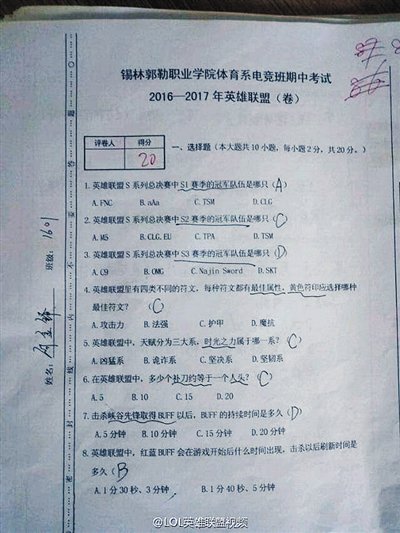 锡林郭勒职业学院体育系电竞班期中考试
2016—2017 年英雄联盟（卷）
评卷人 得分
20
一、选择题（本大题共 10 小题，每小题 2 分，共 20 分。）
1. 英雄联盟 S 系列总决赛中 S1 赛季的冠军队伍是哪只（A）
A. FNC B. aAa C. TSM D. CLG
2. 英雄联盟 S 系列总决赛中 S2 赛季的冠军队伍是哪只（C）
A. M5 B. CLG.EU C. TPA D. TSM
3. 英雄联盟 S 系列总决赛中 S3 赛季的冠军队伍是哪只（D）
A. C9 B. OMG C. Najin Sword D. SKT
4. 英雄联盟里有四类不同的符文，每种符文都有最佳属性，黄色符印应选择哪种
最佳符文？（C）
A. 攻击力 B. 法强 C. 护甲 D. 魔抗
5. 英雄联盟中，天赋分为三大系，时光之力属于哪一系？（C）
A. 凶猛系 B. 诡诈系 C. 坚决系 D. 坚韧系
6. 在英雄联盟中，多少个补刀约等于一个人头？（C）
A. 5 B. 10 C. 15 D. 20
7. 击杀峡谷先锋取得 BUFF 以后，BUFF 的持续时间是多久（D）
A. 5 分钟 B. 10 分钟 C. 15 分钟 D. 20 分钟
8. 英雄联盟中，红蓝 BUFF 会在游戏开始后什么时间出现，击杀以后刷新时间是
多久（B
A. 1 分 30 秒、3 分钟 B. 1 分 40 秒、5 分钟
班级：1601
姓名：
密 封 线 内 不 要 答 题
@LOL英雄联盟视频